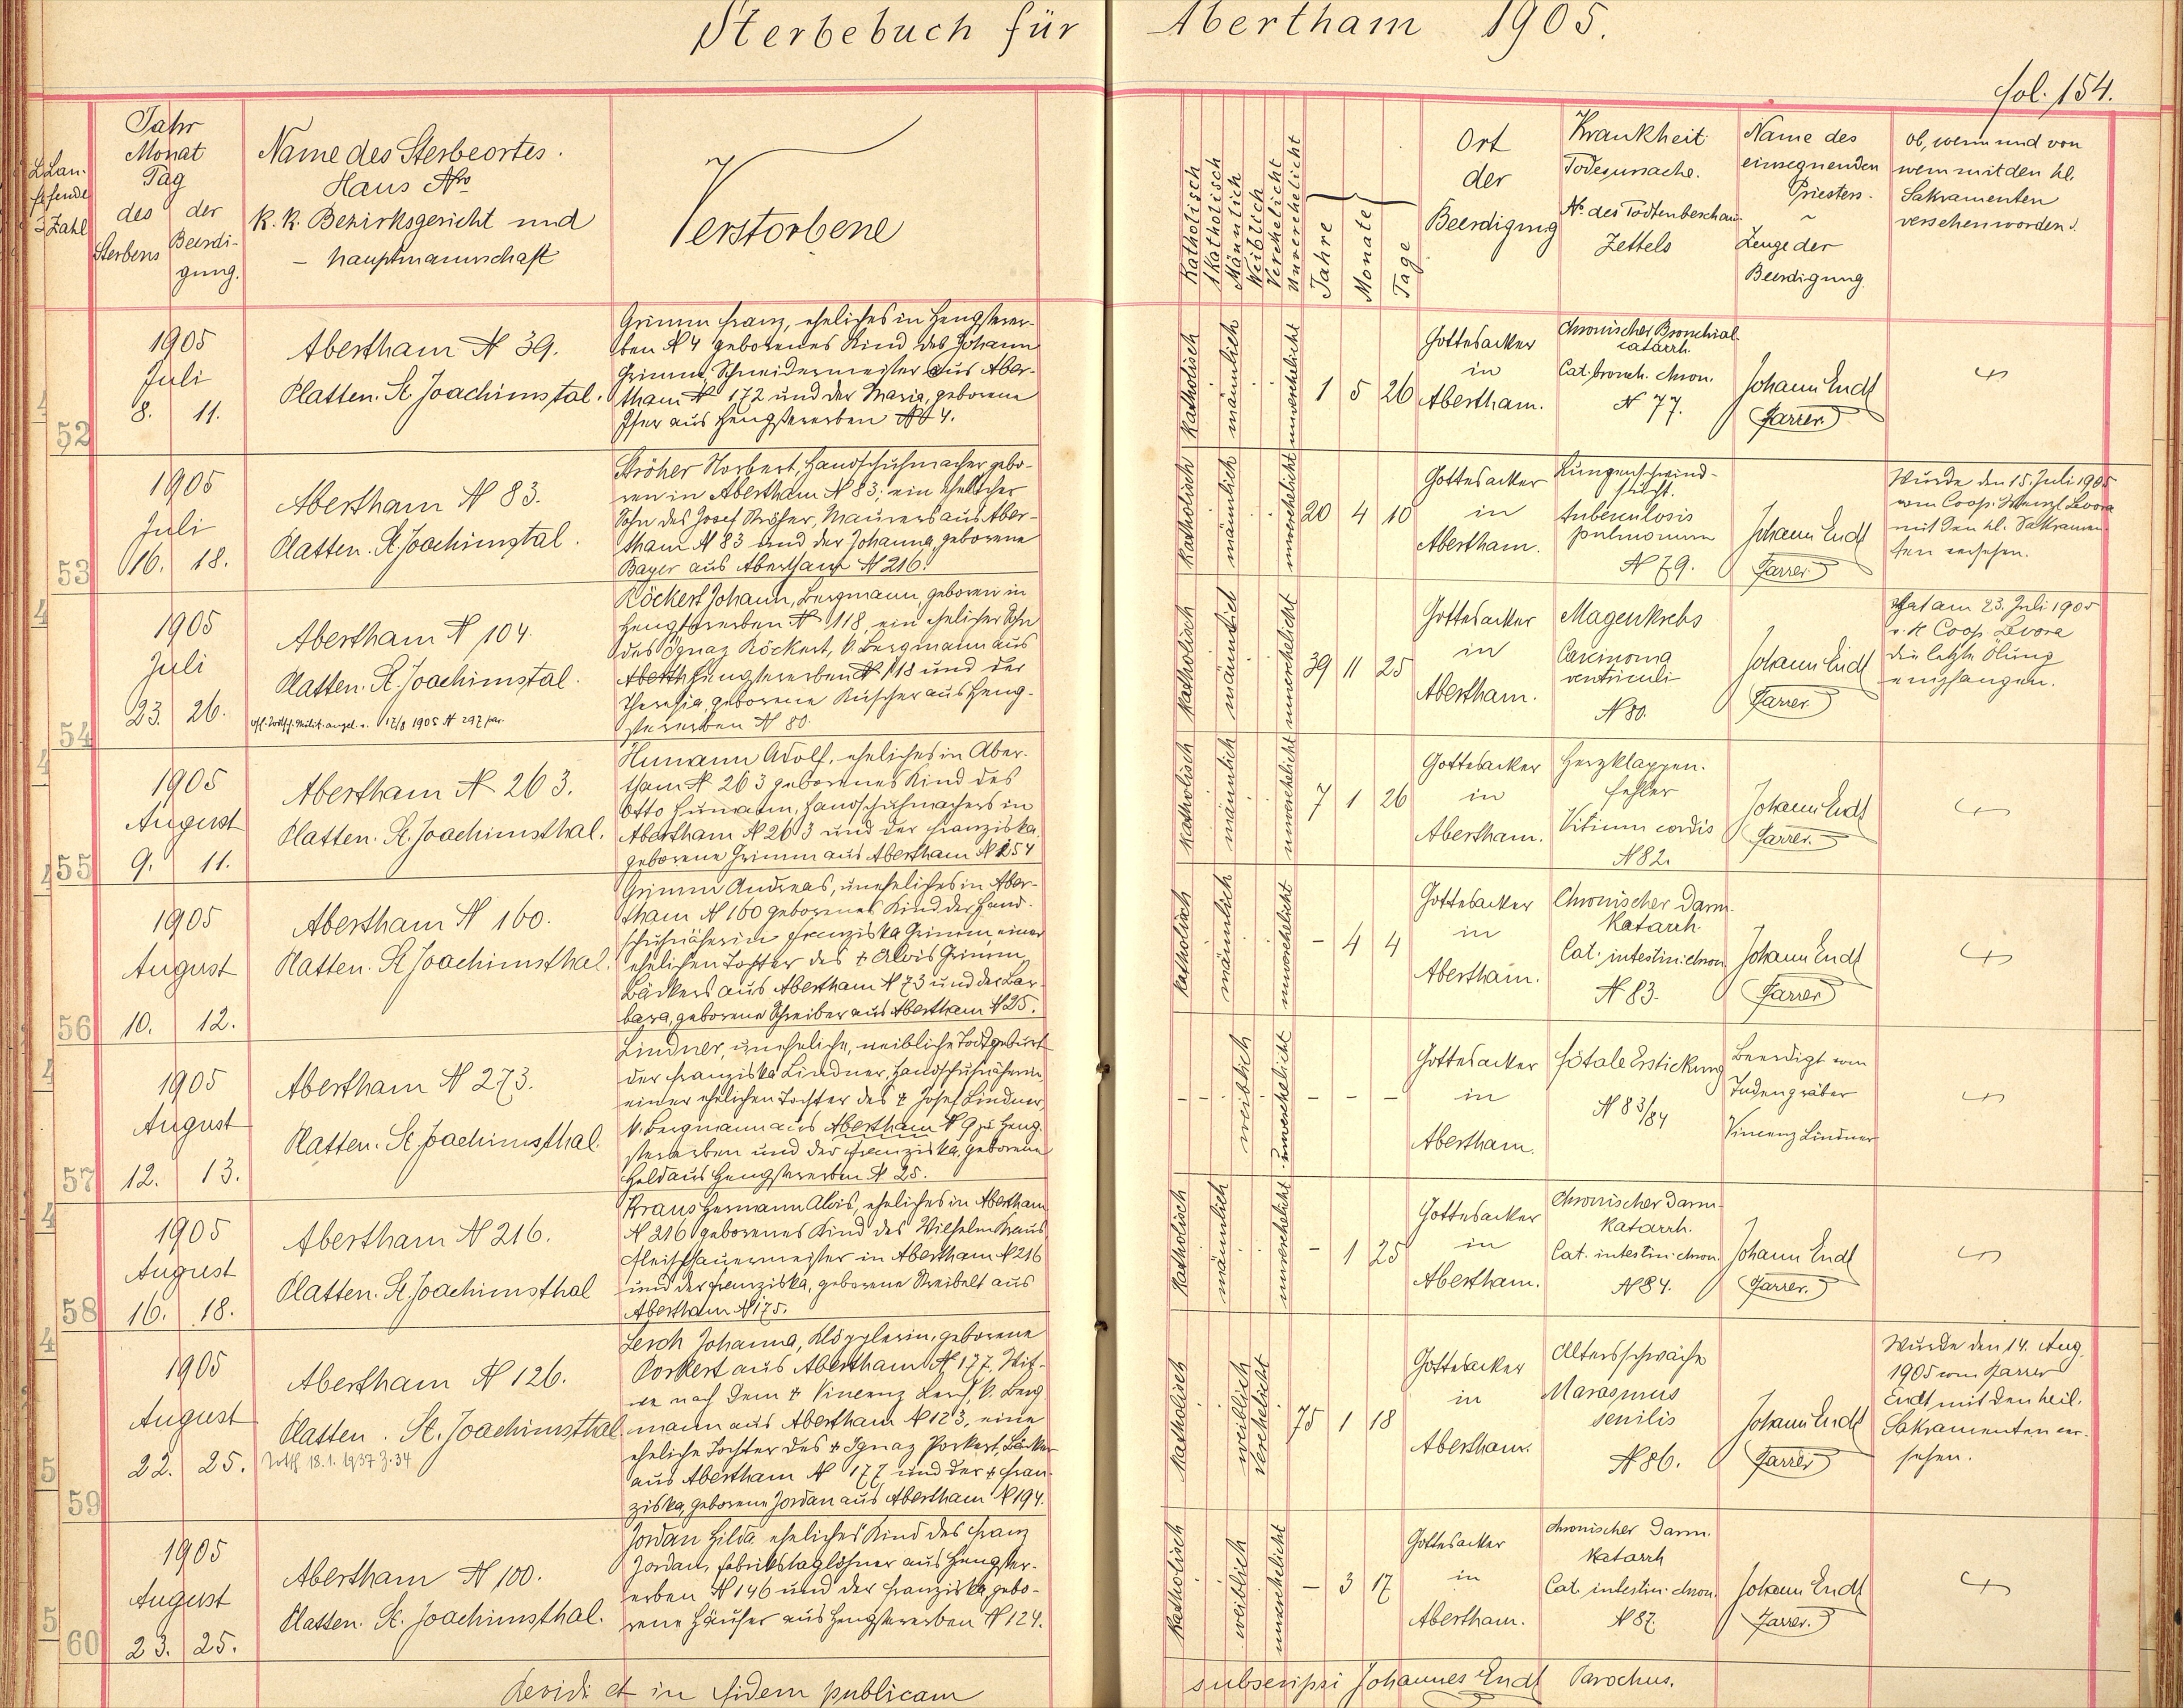 Sterbebuch für Abertham 1905.
fol. 154.
Laufende Zahl
Jahr
Monat
Tag
des Sterbens
der Beerdigung.
Name des Sterbeortes.
Haus No
k. k. Bezirksgericht und
- hauptmannschaft
Verstorbene
Katholisch
Akatholisch
Männlich
Weiblich
Verehelicht
Unverehelicht
Jahre
Monate
Tage
Ort
der
Beerdigung
Krankheit
Todesursache.
No. des Todtenbeschau-
Zettels
Name des
einsegnenden
Priesters.
Zeuge der
Beerdigung.
ob, wenn und von
wem mit den hl.
Sakramenten
versehen worden.
52
1905
Juli
8. 11.
Abertham N 39.
Platten. St. Joachimstal.
Grimm Franz, eheliches in Hengsterer-
ben N 4 geborenes Kind des Johann
Grimm Schneidermeister aus Aber-
tham N 172 und der Maria, geborene
aus Hengstererben N 4.
katholisch männlich unverehelicht
1 5 26
Gottesacker
in
Abertham.
Chronischer Bronchial-
catarrh.
Cat. bronch. chron.
N 77.
Johann Endt
Pfarrer
53
1905
Juli
16. 18.
Abertham N 83.
Platten. St. Joachimstal.
Ströher Norbert, Handschuhmacher gebo-
ren in Abertham N 83; ein ehelicher
Sohn des Josef Ströher, Maurers aus Aber-
tham N 83 und der Johanna, geborene
Bayer aus Abertham N 216.
katholisch männlich unverehelicht
20 4 10
Gottesacker
in
Abertham.
Lungenschwind-
sucht.
tuberculosis
pulmonum
N 79.
Johann Endt
Pfarrer
Wurde den 15. Juli 1905
vom Coop. Wenzl
mit den hl. Sakramen-
ten versehen.
54
1905
Juli
23. 26.
Abertham N 104.
Platten. St. Joachimstal.
1905 N 297 par.
Röckert Johann, Bergmann, geboren in
Hengstererben N 118, ein ehelicher Sohn
des Ignaz Röckert, k. Bergmann aus
Aberth Hengstererben N. 118 und der
Theresia, geborene aus Heng-
stererben N 80.
katholisch männlich unverehelicht
39 11 25
Gottesacker
in
Abertham.
Magenkrebs
Carcinoma
ventriculi
N 80.
Johann Endt
Pfarrer
Hat am 23. Juli 1905
v. H. Coop.
die letzte Ölung
empfangen.
55
1905
August
9. 11.
Abertham N 263.
Platten. St. Joachimsthal.
Humann Adolf, eheliches in Aber-
tham N 263 geborenes Kind des
Otto Humann, Handschuhmachers in
Abertham N 263 und der Franziska,
geborene Grimm aus Abertham N 254
katholisch männlich unverehelicht
7 1 26
Gottesacker
in
Abertham.
Herzklappen-
fehler
Vitium cordis
N 82.
Johann Endt
Pfarrer.
56
1905
August
10. 12.
Abertham N 160.
Platten. St. Joachimsthal.
Grimm Andreas, uneheliches in Aber-
tham N 160 geborenes Kind der Hand-
schuhnäherin Franziska Grimm, einer
ehelichen Tochter des † Alois Grimm,
Bäckers aus Abertham N 73 und der Bar-
bara, geborene Schreiber aus Abertham N 25.
katholisch männlich unverehelicht
- 4 4
Gottesacker
in
Abertham.
Chronischer Darm-
katarrh
Cat. intestin. chron.
N 83.
Johann Endt
Pfarrer
57
1905
August
12. 13.
Abertham N 273.
Platten. St. Joachimsthal.
Lindner, uneheliche, weibliche Todtgeburt
der Franziska Lindner, Handschuhnäherin,
einer ehelichen Tochter des † Josef Lindner,
k. Bergmann aus Abertham N 9 zu Heng-
stererben und der Franziska, geborene
Held aus Hengstererben N 25.
weiblich unverehelicht
- - -
Gottesacker
in
Abertham.
fötale Erstickung
N 83/84
Beerdigt vom
Todengräber
Vincenz Lindner
58
1905
August
16. 18.
Abertham N 216.
Platten. St. Joachimsthal
Kraus Hermann Alois, eheliches in Abertham
N 216 geborenes Kind des Wilhelm Kraus
Fleischhauermeister in Abertham N 216
und der Franziska, geborene Streibelt aus
Abertham N 175.
katholisch männlich unverehelicht
- 1 25
Gottesacker
in
Abertham.
Chronischer Darm-
katarrh.
Cat. intestin. chron.
N 84.
Johann Endt
Pfarrer.
59
1905
August
22. 25.
Abertham N 126.
Platten. St. Joachimsthal
18.1.1937 Z. 34
Lerch Johanna, Klöpplerin, geborene
Porkert aus Abertham N 177. Wit-
we nach dem † Vincenz Lerch, k. Berg
mann aus Abertham N 123, eine
eheliche Tochter des † Ignaz Porkert, Bäcker
aus Abertham N 177 und der † Fran-
ziska, geborene Jordan aus Abertham N 194.
katholisch weiblich verehelicht
75 1 18
Gottesacker
in
Abertham.
Altersschwäche
Marasmus
senilis
N 86.
Johann Endt
Pfarrer
Wurde den 14. Aug.
1905 vom Pfarrer
Endt mit den heil.
Sakramenten ver-
sehen.
60
1905
August
23. 25.
Abertham N 100.
Platten. St. Joachimsthal.
Jordan Hilda eheliches Kind des Franz
Jordan, Fabrikstaglöhner aus Hengster-
erben N 146 und der Franziska, gebo-
rene Häuser aus Hengstererben N 124.
katholisch weiblich unverehelicht
- 3 17
Gottesacker
in
Abertham.
Chronischer Darm-
katarrh
Cat. intestin. chron.
N 87.
Johann Endt
Pfarrer.
Revidi et in fidem publicam subscripsi Johannes Endt Parochus.